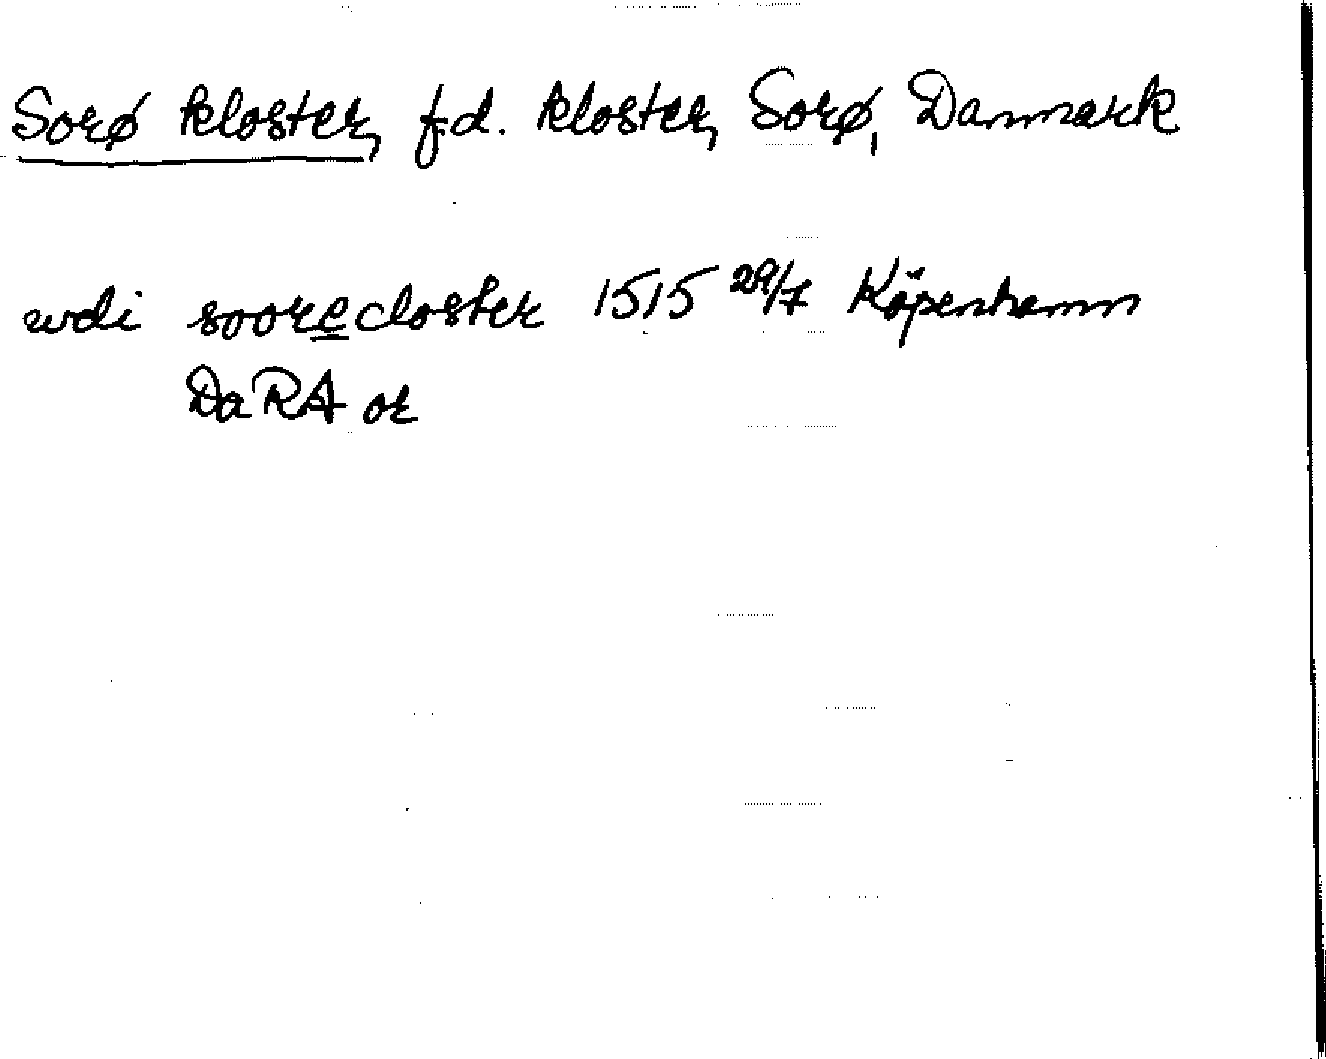 Sorø kloster, f.d. kloster, Sorø, Danmark
wdi soorecloster 1515 29/7 Köpenhamn
DaRA or